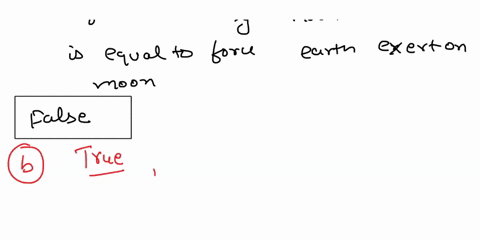 is equal to force earth exert on
moon
False
b True